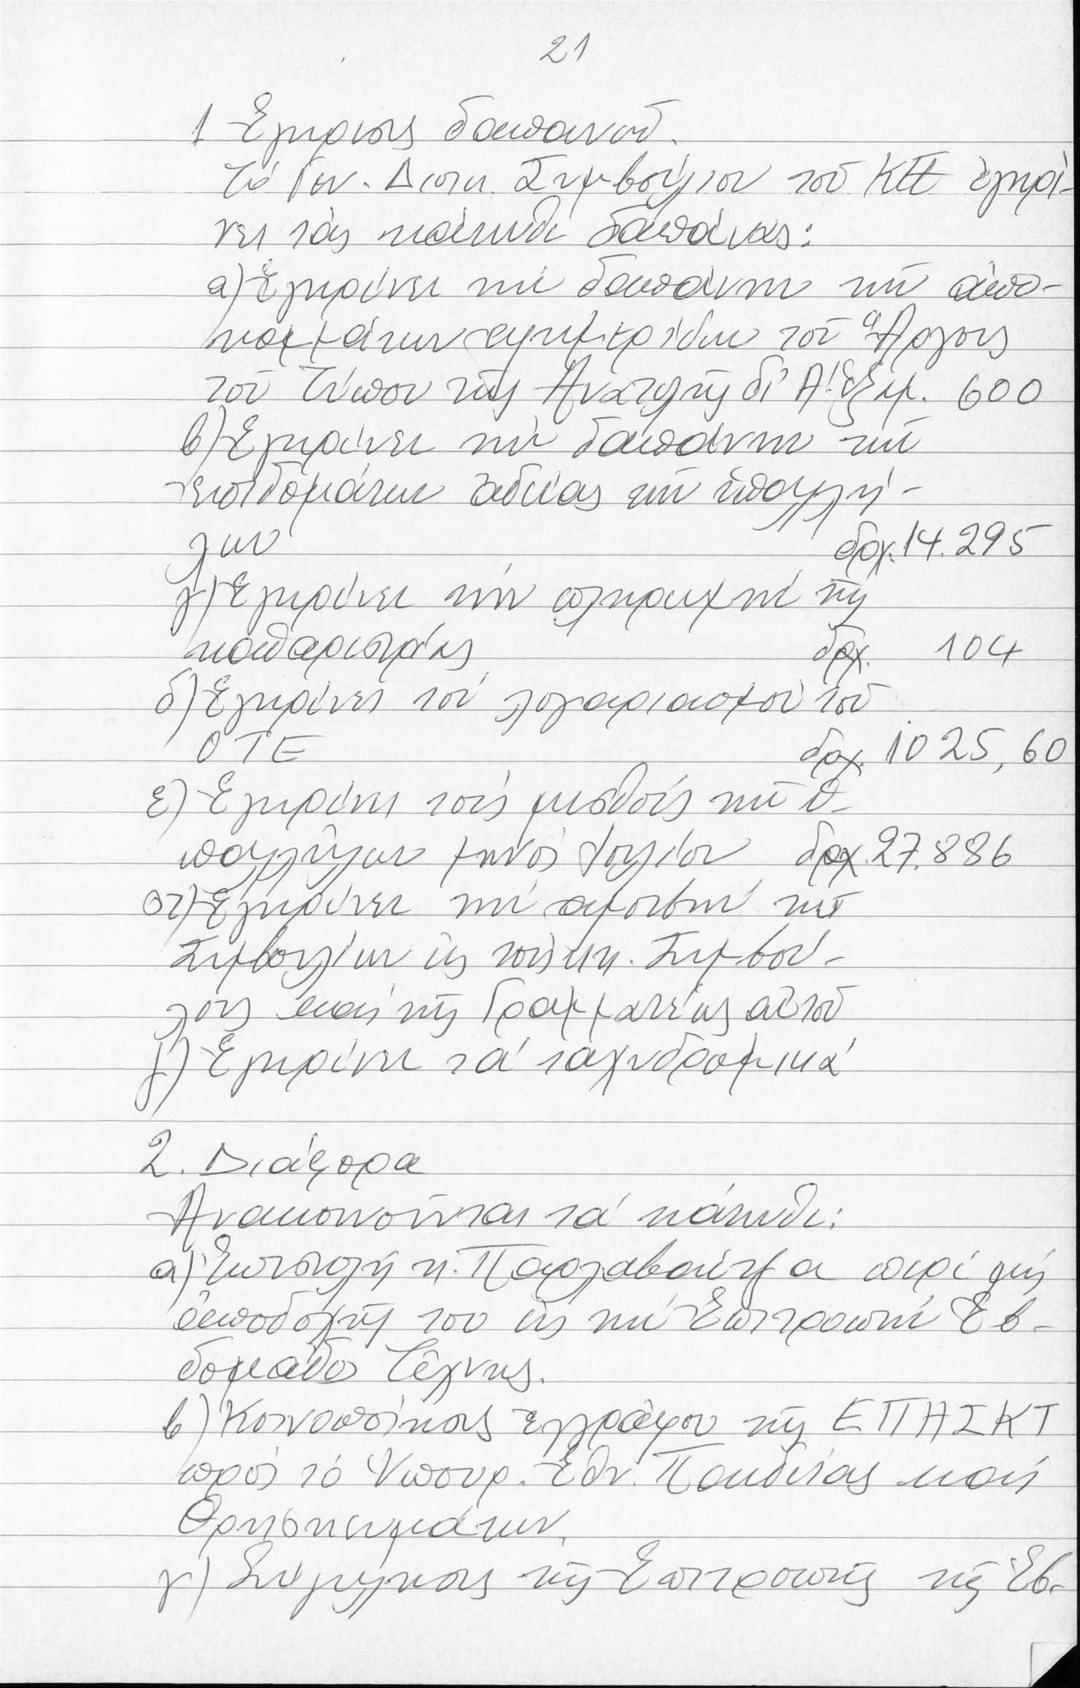 21
1 Ἔγκρισις δαπανῶν.
Τό Γεν. Διοικ. Συμβούλιον τοῦ ΚΠΕ ἐγκρί-
νει τάς κάτωθι δαπάνας:
α) Ἐγκρίνει τήν δαπάνην τῶν ἀπο-
κομμάτων ἐφημερίδων τοῦ
τοῦ Τύπου τῆς Ἀνατολῆς 600
β) Ἐγκρίνει τήν δαπάνην τῶν
ἐπιδομάτων ἀδείας τῶν ὑπαλλή-
λων δρχ. 14.295
γ) Ἐγκρίνει τήν πληρωμήν τῆς
καθαρίστριας δρχ. 104
δ) Ἐγκρίνει τόν λογαριασμόν τοῦ
ΟΤΕ δρχ. 1025,60
ε) Ἐγκρίνει τούς μισθούς τῶν ὑ-
παλλήλων μηνός Ἰουλίου δρχ. 27.886
στ) Ἐγκρίνει τήν ἀμοιβήν τῶν
Συμβουλίων εἰς τούς κκ. Συμβού-
λους καί τῆς Γραμματέως αὐτοῦ
ζ) Ἐγκρίνει τά ταχυδρομικά
2. Διάφορα
Ἀνακοινοῦνται τά κάτωθι:
α) Ἐπιστολή κ. Παρλαβάντζα περί μή
ἀποδοχῆς του εἰς τήν Ἐπιτροπήν Ἑβ-
δομάδος Τέχνης.
β) Κοινοποίησις ἐγγράφου τῆς ΕΠΗΣΚΤ
πρός τό Ὑπουρ. Ἐθν. Παιδείας καί
Θρησκευμάτων.
γ) Σύγκλησις τῆς Ἐπιτροπῆς τῆς Ἑβ-